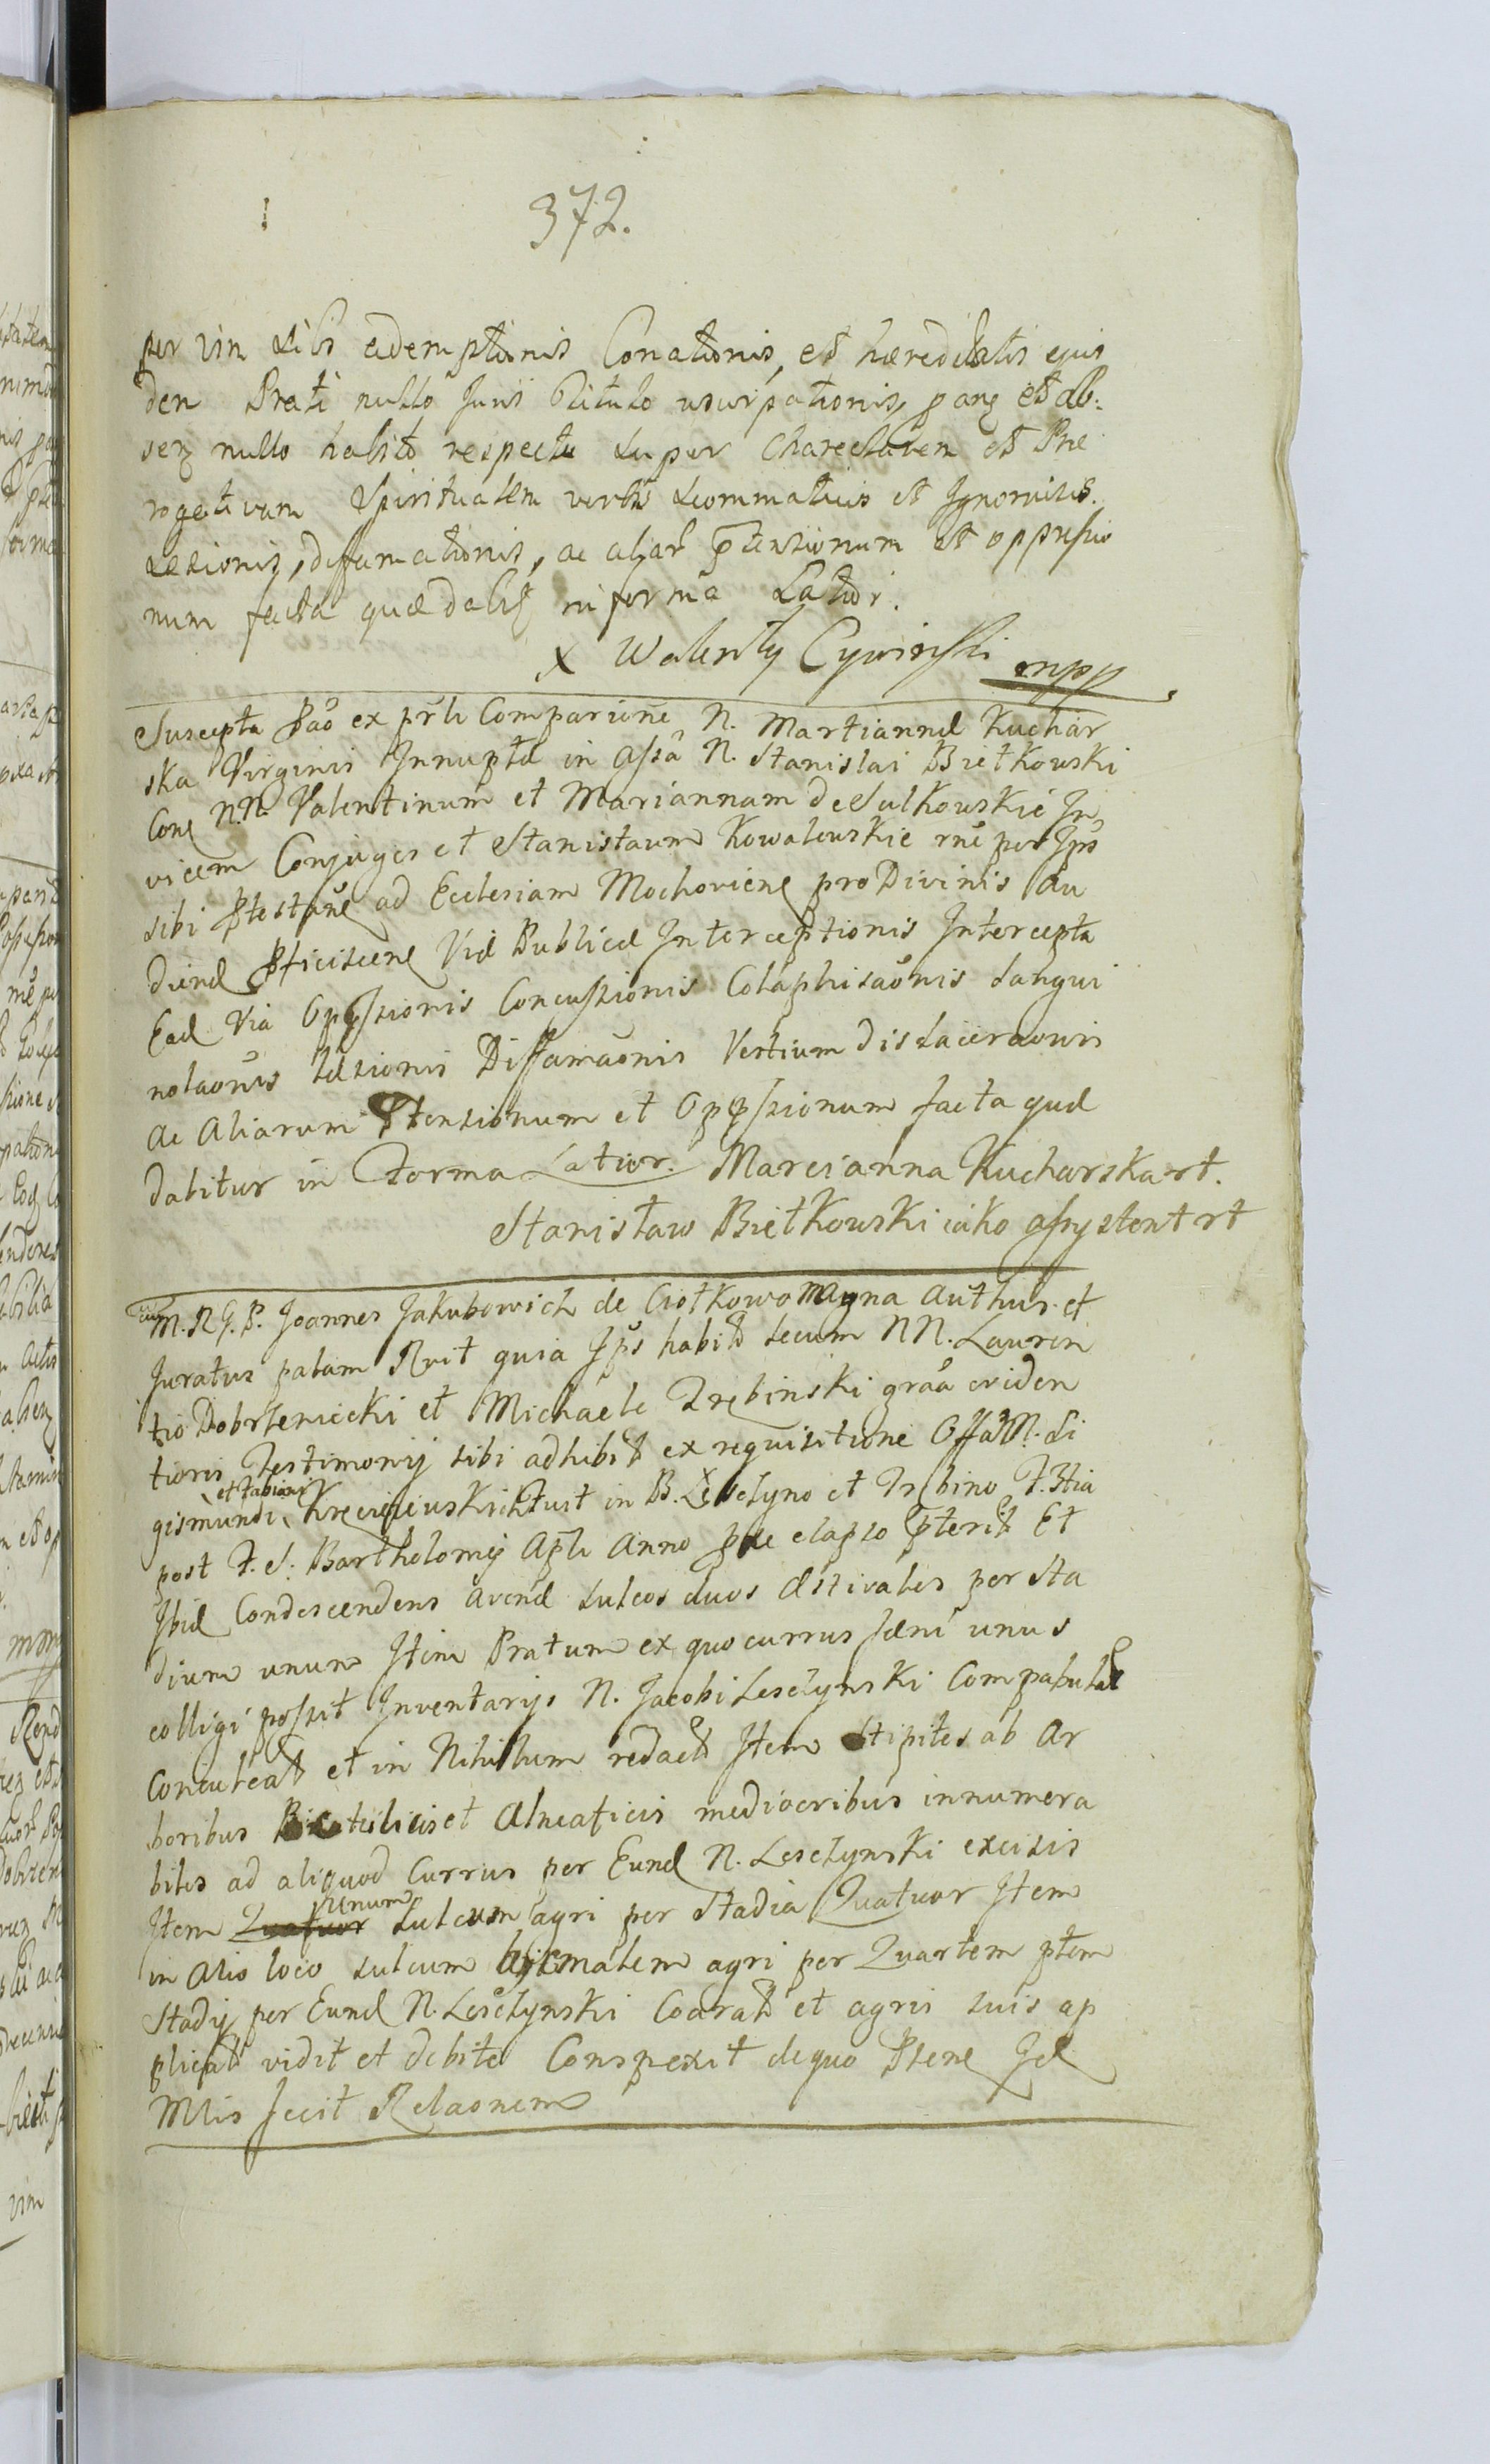 372.
per vim sibi ademptionis Conationis, et haereditatis ejus
dem Prati nullo Juris titulo usurpationis, pang et ab:
seng nullo habito respectu super Charecterem et Pre
rogativam Spiritualem verbis scommaticis et Ignominios.
Laesionis, diffamationis, ac aliar ptensionum et oppressio
num facta quae dabit in forma Latiori.
X Walenty Cywinski mpp
Suscepta Pao ex prli Comparione N. Martiannae Kuchar
ska Virginis Innuptae in assa N. Stanislai Bietkowski
Cong N.N. Valentinum et Mariannam de Sulkowskie In
vicem Conjuges et Stanislaum Kowalewskie rne per Ips
sibi ptestane ad Ecclesiam Mochoviene pro Divinis Au
diend pficiscene Viae Publicae Interceptionis Intercepta
Ead Via Oppssionis Concussionis Colaphisaonis Sangui
nolaonis Laesionis Diffamaonis Vestium Dislaceraonis
ac Aliarum Ptensionum et Oppssionum facta quae
dabitur in Forma Latior. Marcianna Kucharska rt.
Stanisław Bietkowski iako assystent rt
M. R. G. P. Joannes Jakubowich de Ciotkowo Magna Authus. et
Juratus palam Rvit quia Ips habit secum NN. Lauren
tio Dobrseniecki et Michaele Trębinski graa eviden
tioris Testimonij sibi adhibit ex requisitione Offa N. Si
gismundi, et Fabiani fuit in B. Leselyno et Trębino F. 3tia
post F. S. Bartholomij Apli Anno pae elapso pterit Et
Ibid Condescendens avenae sulcos duos aestivales per Sta
dium unum Item Pratum ex quo currus faeni unus
colligi possit Inventarijs N. Jacobi Leselynski Compabulat
Conculcat et in Nihilum redact Item Stipites ab Ar
boribus et Alneaticis mediocribus innumera
biles ad aliquod Currus per Eund N. Leselynski excisis
Item Quatuor Unum sulcum agri per Stadia Quatuor Item
in Alio loco sulcum hyiemalem agri per Quartem ptem
Stadij per Eund N. Leselynski Coarat et agris suis ap
plicat vidit et debite Conspexit de quo Psene Id
Mlis fecit Relaonem